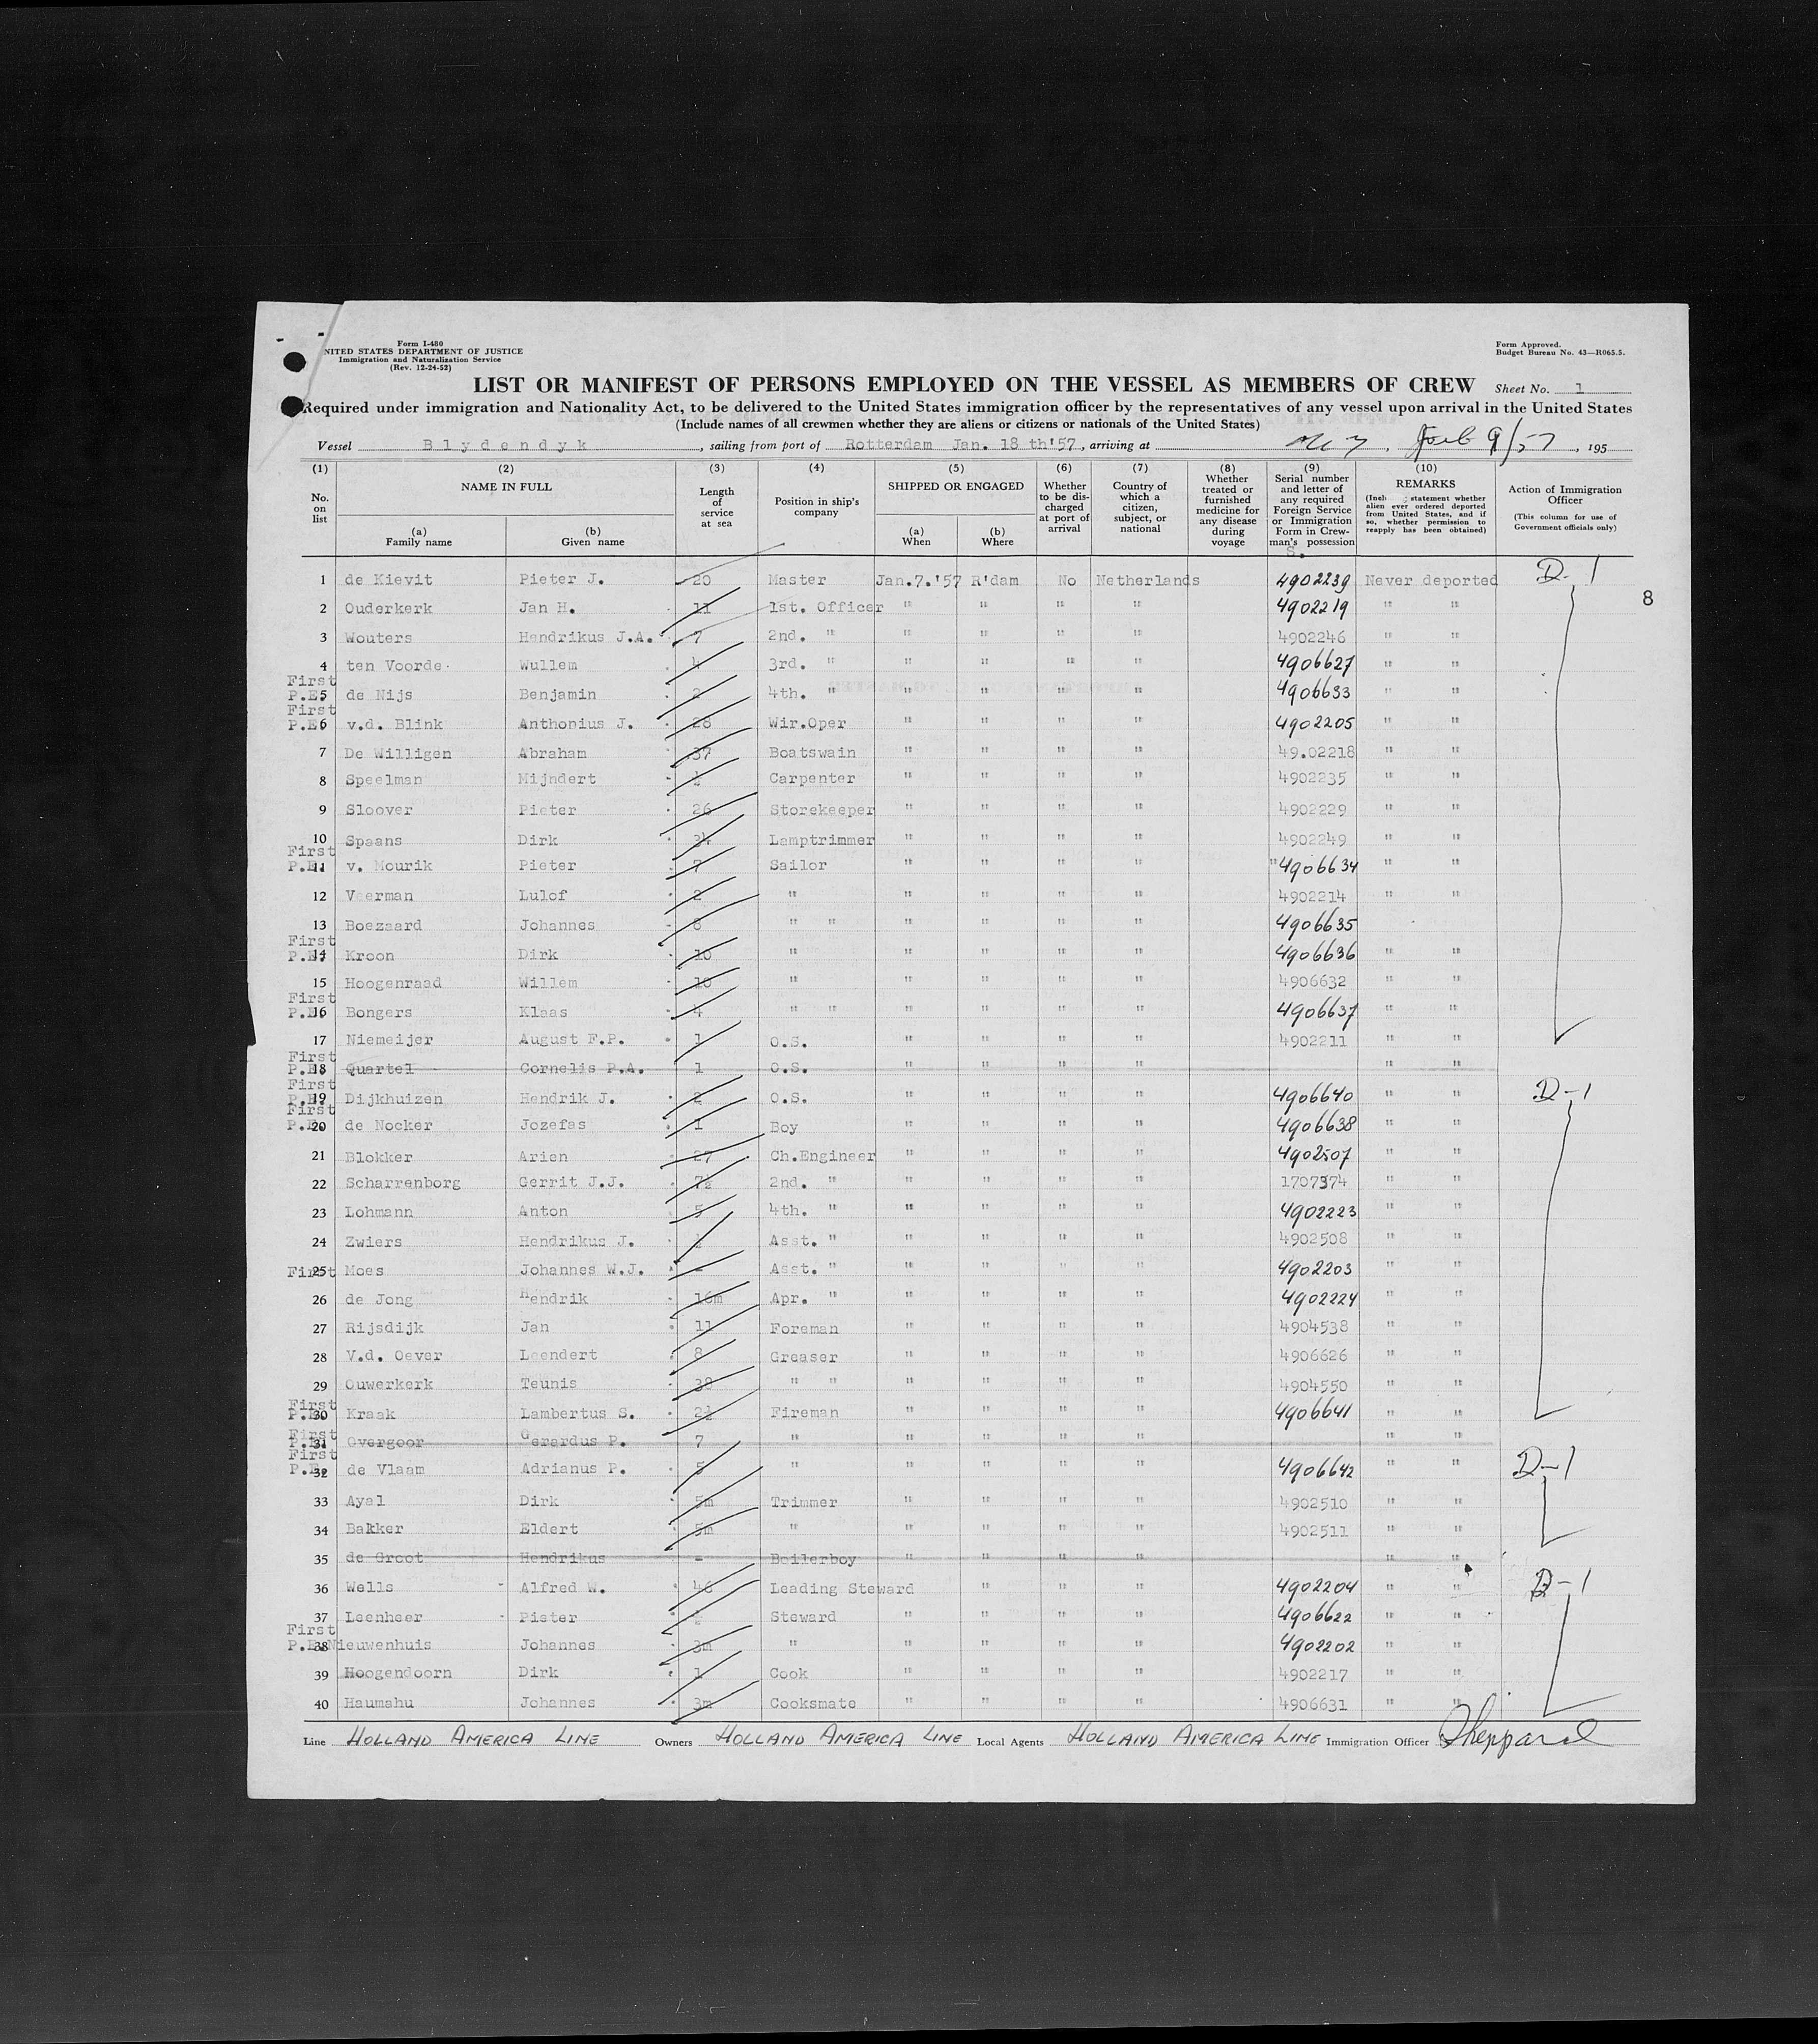 Form I-480
UNITED STATES DEPARTMENT OF JUSTICE
Immigration and Naturalization Service
(Rev. 12-24-52)
Form Approved.
Budget Bureau No. 43—R065.5.
LIST OR MANIFEST OF PERSONS EMPLOYED ON THE VESSEL AS MEMBERS OF CREW Sheet No. 1
Required under immigration and Nationality Act, to be delivered to the United States immigration officer by the representatives of any vessel upon arrival in the United States
(Include names of all crewmen whether they are aliens or citizens or nationals of the United States)
Vessel Blydendyk, sailing from port of Rotterdam Jan. 18 th'57, arriving at Feb 9/57, 195
(1) No. on list
(2) NAME IN FULL
(a) Family name
(b) Given name
(3) Length of service at sea
(4) Position in ship's company
(5) SHIPPED OR ENGAGED
(a) When
(b) Where
(6) Whether to be discharged at port of arrival
(7) Country of which a citizen, subject, or national
(8) Whether treated or furnished medicine for any disease during voyage
(9) Serial number and letter of any required Foreign Service or Immigration Form in Crewman's possession
(10) REMARKS
statement whether alien ever ordered deported from United States, and if so, whether permission to reapply has been obtained)
Action of Immigration Officer
(This column for use of Government officials only)
S.
1 de Kievit Pieter J. 20 Master Jan.7.'57 R'dam No Netherlands 4902239 Never deported D-1
8
2 Ouderkerk Jan H. 11 1st. Officer " " " " 4902219 " "
3 Wouters Hendrikus J.A. 7 2nd. " " " " " 4902246 " "
4 ten Voorde Wullem 4 3rd. " " " " " 4906627 " "
First P.E. 5 de Nijs Benjamin 2 4th. " " " " " 4906633 " "
First P.E. 6 v.d. Blink Anthonius J. 28 Wir.Oper " " " " 4902205 " "
7 De Willigen Abraham 37 Boatswain " " " " 49.02218 " "
8 Speelman Mijndert Carpenter " " " " 4902235 " "
9 Sloover Pieter 26 Storekeeper " " " " 4902229 " "
10 Spaans Dirk 34 Lamptrimmer " " " " 4902249 " "
First P.E. 11 v. Mourik Pieter 7 Sailor " " " " "4906634 " "
12 Veerman Lulof 2 " " " " " 4902214 " "
13 Boezaard Johannes 8 " " " " " " 4906635
First P.E. 14 Kroon Dirk 10 " " " " " 4906636 " "
15 Hoogenraad Willem 10 " " " " " 4906632 " "
First P.E. 16 Bongers Klaas 4 " " " " " " 4906637 " "
17 Niemeijer August F.P. 1 O.S. " " " " 4902211 " "
First P.E. 18 Quartel Cornelis P.A. 1 O.S. " " " " " "
First P.E. 19 Dijkhuizen Hendrik J. 2 O.S. " " " " 4906640 " " D-1
First P.E. 20 de Nocker Jozefas 1 Boy " " " " 4906638 " "
21 Blokker Arien 27 Ch.Engineer " " " " 4902507 " "
22 Scharrenborg Gerrit J.J. 7½ 2nd. " " " " " 1707374 " "
23 Lohmann Anton 5 4th. " " " " " 4902223 " "
24 Zwiers Hendrikus J. Asst. " " " " " 4902508 " "
First 25 Moes Johannes W.J. - Asst. " " " " " 4902203 " "
26 de Jong Hendrik 16m Apr. " " " " " 4902224 " "
27 Rijsdijk Jan 11 Foreman " " " " 4904538 " "
28 V.d. Oever Leendert 8 Greaser " " " " 4906626 " "
29 Ouwerkerk Teunis 38 " " " " " " 4904550 " "
First P.E. 30 Kraak Lambertus S. 2½ Fireman " " " " 4906641 " "
First P.E. 31 Overgoor Gerardus P. 7 " " " " " " "
First P.E. 32 de Vlaam Adrianus P. 5 " " " " " 4906642 " " D-1
33 Ayal Dirk 5m Trimmer " " " " 4902510 " "
34 Bakker Eldert 5m " " " " " 4902511 " "
35 de Groot Hendrikus - Boilerboy " " " " " "
36 Wells Alfred W. 46 Leading Steward " " " 4902204 " " D-1
37 Leenheer Pieter Steward " " " " 4906622 " "
First P.E. 38 Nieuwenhuis Johannes 3m " " " " " 4902202 " "
39 Hoogendoorn Dirk 1 Cook " " " " 4902217 " "
40 Haumahu Johannes 3m Cooksmate " " " " 4906631 " "
Line HOLLAND AMERICA LINE Owners HOLLAND AMERICA LINE Local Agents HOLLAND AMERICA LINE Immigration Officer Sheppard